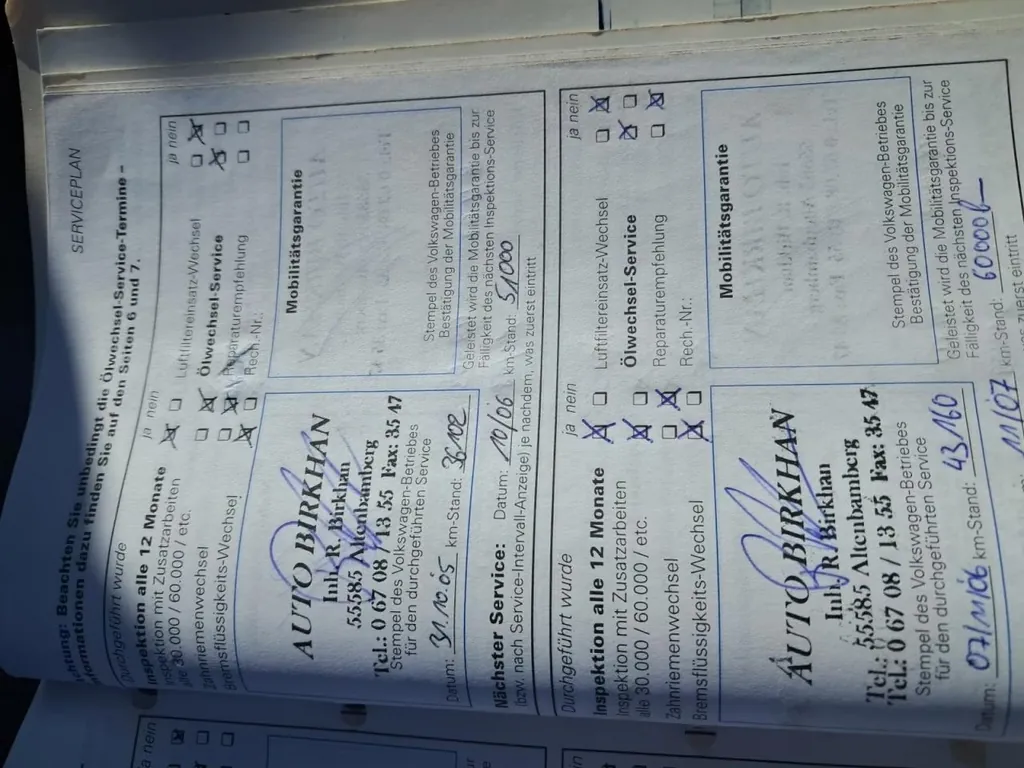 SERVICEPLAN
Beachten Sie unbedingt die Ölwechsel-Service-Termine –
Informationen dazu finden Sie auf den Seiten 6 und 7.
Durchgeführt wurde
ja nein
ja nein
Inspektion alle 12 Monate
Luftfiltereinsatz-Wechsel
Inspektion mit Zusatzarbeiten
alle 30.000 / 60.000 / etc.
Ölwechsel-Service
Zahnriemenwechsel
Reparaturempfehlung
Bremsflüssigkeits-Wechsel
Rech.-Nr.:
AUTO BIRKHAN
Inh. R. Birkhan
55585 Altenbamberg
Tel.: 0 67 08 / 13 55 Fax: 35 47
Stempel des Volkswagen-Betriebes
für den durchgeführten Service
Datum: 31.10.05 km-Stand: 36102
Mobilitätsgarantie
Stempel des Volkswagen-Betriebes
Bestätigung der Mobilitätsgarantie
Geleistet wird die Mobilitätsgarantie bis zur
Fälligkeit des nächsten Inspektions-Service
Nächster Service: Datum: 10/06 km-Stand: 51000
(bzw. nach Service-Intervall-Anzeige) je nachdem, was zuerst eintritt
Durchgeführt wurde
ja nein
ja nein
Inspektion alle 12 Monate
Luftfiltereinsatz-Wechsel
Inspektion mit Zusatzarbeiten
alle 30.000 / 60.000 / etc.
Ölwechsel-Service
Zahnriemenwechsel
Reparaturempfehlung
Bremsflüssigkeits-Wechsel
Rech.-Nr.:
AUTO BIRKHAN
Inh. R. Birkhan
55585 Altenbamberg
Tel.: 0 67 08 / 13 55 Fax: 35 47
Stempel des Volkswagen-Betriebes
für den durchgeführten Service
Datum: 07/11/06 km-Stand: 43160
Mobilitätsgarantie
Stempel des Volkswagen-Betriebes
Bestätigung der Mobilitätsgarantie
Geleistet wird die Mobilitätsgarantie bis zur
Fälligkeit des nächsten Inspektions-Service
11/07 km-Stand: 60000
zuerst eintritt
ja nein
ja nein